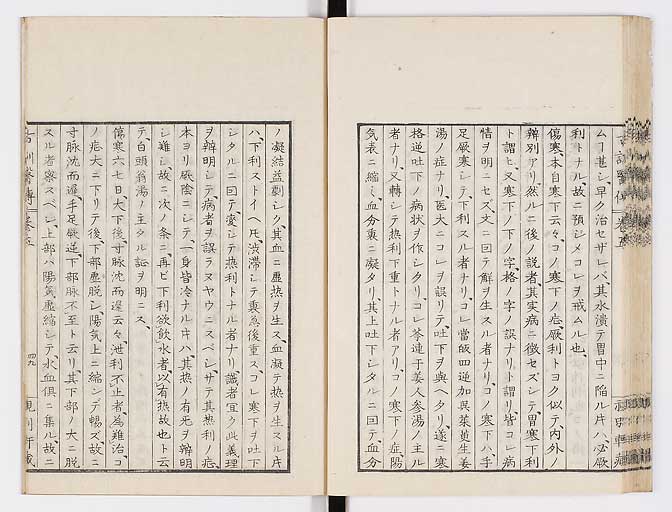 ムコ甚シ、早ク治セザレバ、其水潰テ胃中ニ陥ル片ハ、必厥
利トナル、故ニ預シメコレヲ戒ムル也、
傷寒、本自寒下云々、コノ寒下ノ症、厥利トヨク似テ、内外ノ
辨別アリ、然ルニ後ノ説者、其実病ニ徴セズシテ、胃寒下利
ト謂ヒ、又寒下ノ下ノ字、格ノ字ノ誤ナリト謂リ、皆コレ病
情ヲ明ニセズ、文ニ因テ解ヲ生スル者ナリ、コノ寒下ハ、手
足厥寒シテ、下利スル者ナリ、コレ當皈四逆加呉茱萸生姜
湯ノ症ナリ、医大ニコレヲ誤リテ、吐下ヲ與ヘタリ、遂ニ寒
格逆吐下ノ病状ヲ作シタリ、コレ芩連于姜人参湯ノ主ル
者ナリ、又轉シテ熱利下重トナル者アリ、コノ寒下ノ症、陽
気表ニ縮ミ、血分裏ニ凝タリ、其上吐下シタルニ因テ、血分
ノ凝結益劇シク、其血ニ虚熱ヲ生ス、血凝テ熱ヲ生スル片
ハ、下利ストイヘ𪜈、渋滞シテ裏急後重ス、コレ寒下ヲ吐下
シタルニ因テ、変シテ熱利トナル者ナリ、識者宜ク此義理
ヲ辨明シテ、病者ヲ誤ラヌヤウニスベシ、サテ其熱利ノ症、
本ヨリ厥陰ニシテ、一身皆冷ナル片ハ、其熱ノ有死ヲ辨明
シ難シ、故ニ次ノ条ニ、再ビ下利欲飲水者、以有熱故也ト云
テ、白頭翁湯ノ主タル証ヲ明ニス、
傷寒六七日、大下後、寸脉沈而遅云々、泄利不止者、為難治、コ
ノ症大ニ下リテ後、下部悪脱シ、陽気上ニ縮シデ暢ズ、故ニ
寸脉沈而遅、手足厥逆、下部脉不至ト云リ、其下部ノ大ニ脱
スル者察スベシ、上部ハ陽気虚縮シテ、水血倶ニ集ル、故ニ
古訓醫傳 巻五
四九